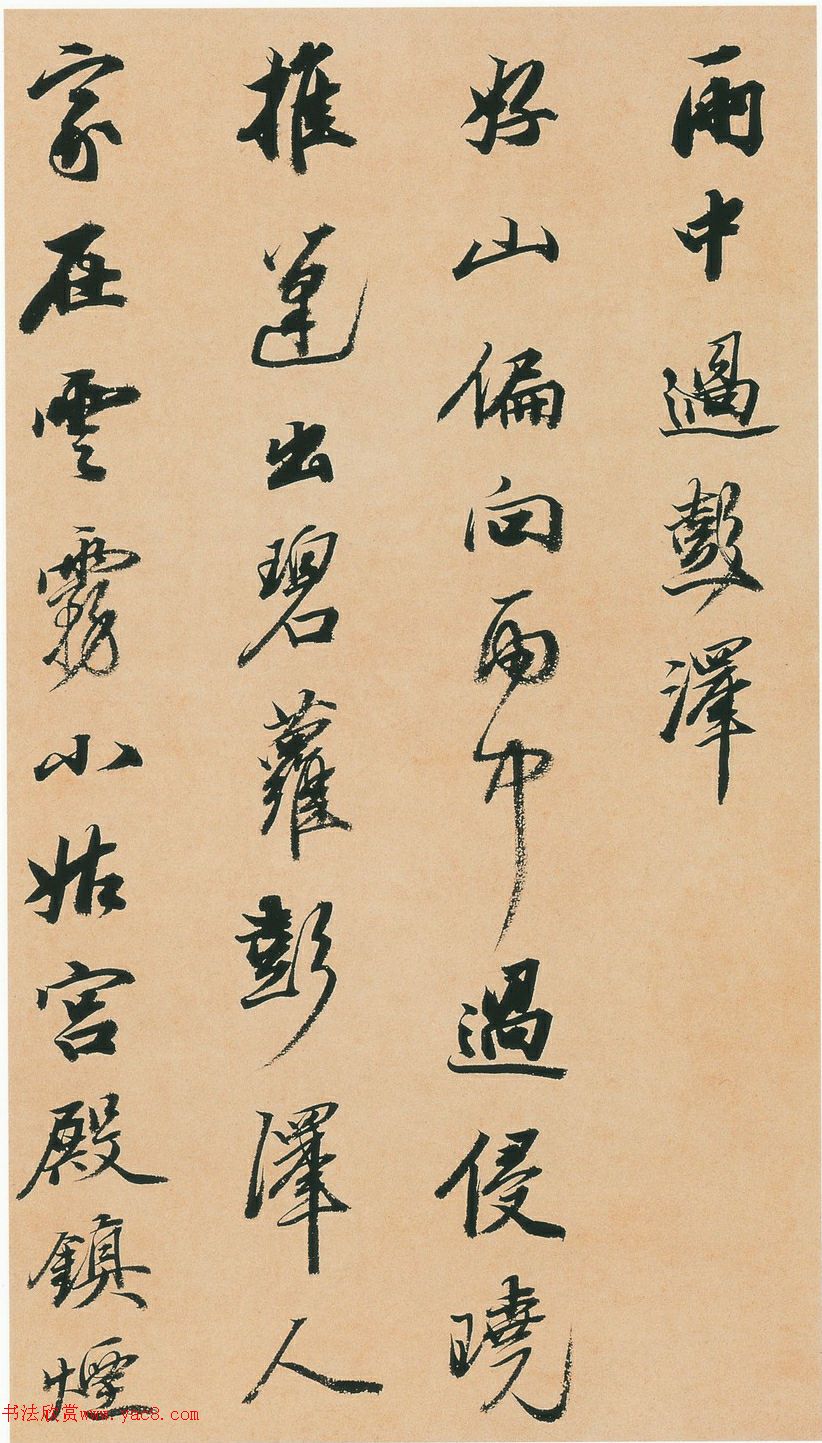 雨中過彭澤
好山偏向雨中過侵曉
推篷出碧蘿彭澤人
家在雲霧小姑宮殿鎮煙
书法欣赏www.yac8.com